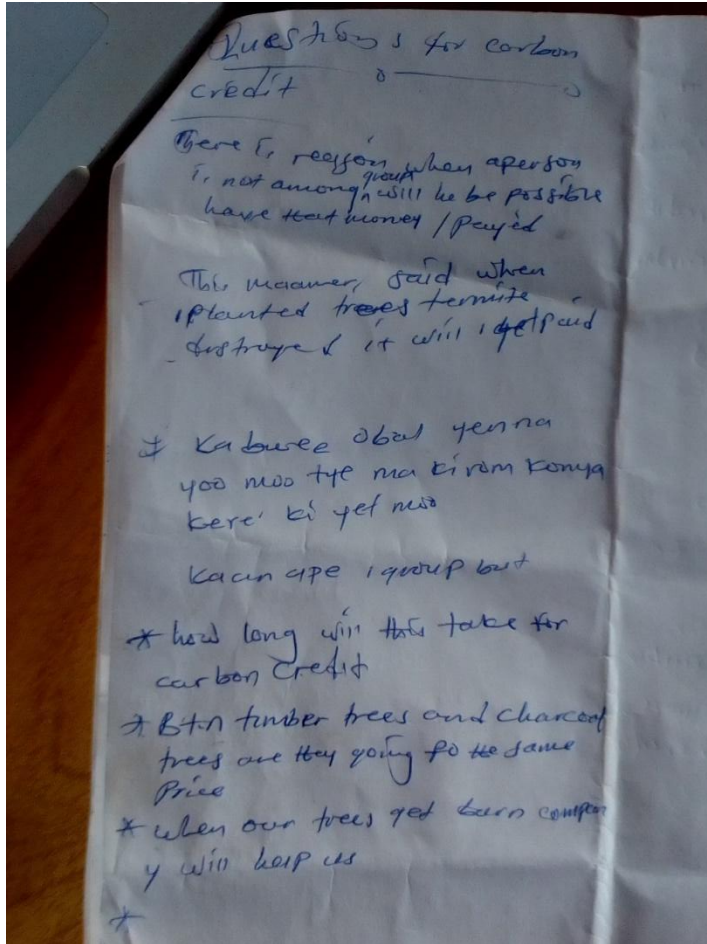 Questions for carbon
credit
There is reason when aperson
is not among group will he be possible
have that money / payed
This maamer, said when
i planted trees termite
destroyed it will i get paid
* Kaburee Obal yenna
yoo moo tye ma kirom konya
kere' ki yet moo
Kaan ape i group but
* how long will this take for
carbon Credit
* Btn timber trees and charcoal
trees are they going to the same
Price
* when our trees get burn compan
y will help us
*